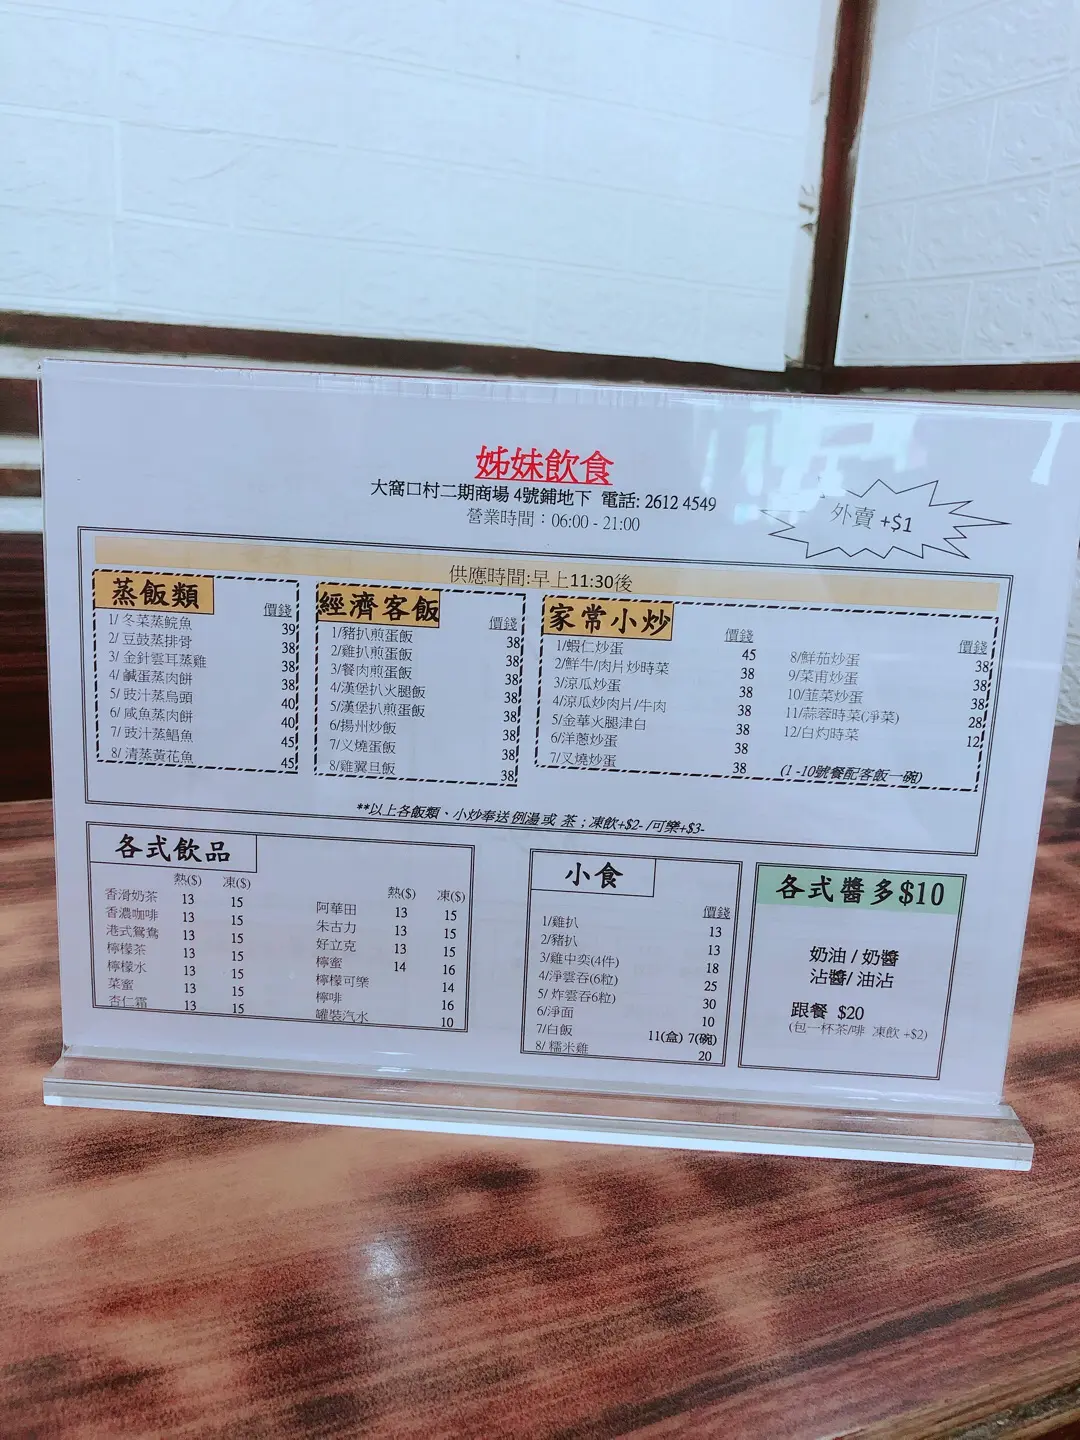 姊妹飲食
大窩口村二期商場 4號鋪地下 電話: 2612 4549
營業時間：06:00 - 21:00
外賣 +$1
供應時間:早上11:30後
蒸飯類
價錢
1/ 冬菜蒸鯇魚 39
2/ 豆鼓蒸排骨 38
3/ 金針雲耳蒸雞 38
4/ 鹹蛋蒸肉餅 38
5/ 豉汁蒸烏頭 40
6/ 咸魚蒸肉餅 40
7/ 豉汁蒸鯧魚 45
8/ 清蒸黃花魚 45
經濟客飯
價錢
1/豬扒煎蛋飯 38
2/雞扒煎蛋飯 38
3/餐肉煎蛋飯 38
4/漢堡扒火腿飯 38
5/漢堡扒煎蛋飯 38
6/揚州炒飯 38
7/乂燒蛋飯 38
8/雞翼旦飯 38
家常小炒
價錢
1/蝦仁炒蛋 45
2/鮮牛/肉片炒時菜 38
3/涼瓜炒蛋 38
4/涼瓜炒肉片/牛肉 38
5/金華火腿津白 38
6/洋蔥炒蛋 38
7/叉燒炒蛋 38
價錢
8/鮮茄炒蛋 38
9/菜甫炒蛋 38
10/韮菜炒蛋 38
11/蒜蓉時菜(淨菜) 28
12/白灼時菜 12
(1 -10號餐配客飯一碗)
**以上各飯類、小炒奉送 例湯 或 茶 ; 凍飲+$2- /可樂+$3-
各式飲品
熱($) 凍($)
香滑奶茶 13 15
香濃咖啡 13 15
港式鴛鴦 13 15
檸檬茶 13 15
檸檬水 13 15
菜蜜 13 15
杏仁霜 13 15
熱($) 凍($)
阿華田 13 15
朱古力 13 15
好立克 13 15
檸蜜 14 16
檸檬可樂 14
檸啡 16
罐裝汽水 10
小食
價錢
1/雞扒 13
2/豬扒 13
3/雞中奕(4件) 18
4/淨雲吞(6粒) 25
5/ 炸雲吞6粒) 30
6/淨面 10
7/白飯 11(盒) 7(碗)
8/ 糯米雞 20
各式醬多$10
奶油 / 奶醬
沾醬/ 油沾
跟餐 $20
(包一杯茶/啡 凍飲 +$2)